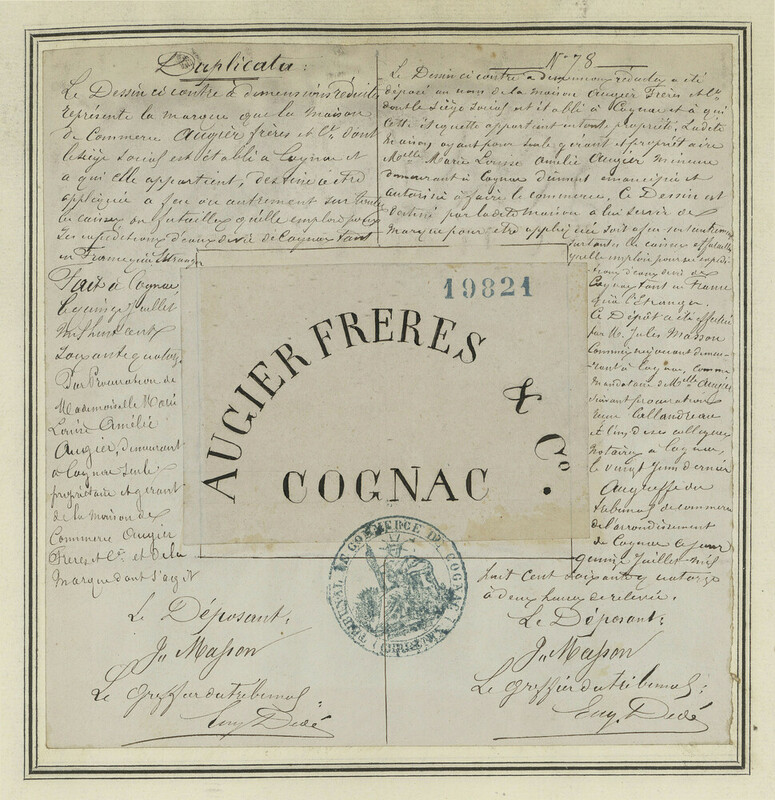 Duplicata :
Le Dessin ci contre à dimensions réduites
représente la marque que la maison
de Commerce Augier frères et Cie dont
le siège social est établi à Cognac et
à qui elle appartient, destine à être
appliquée à feu ou autrement sur toutes
les caisses ou futailles qu'elle emploie pour
ses expéditions d'eaux de vie de Cognac tant
en France qu'à l'Etranger
Fait à Cognac
le quinze Juillet
mil huit cent
soixante quatorze
Par Procuration de
Mademoiselle Marie
Louise Amélie
Augier, demeurant
à Cognac seule
propriétaire et gérant
de la maison de
Commerce Augier
Frères et Cie et de la
Marque dont s'agit
Le Déposant :
Ju Masson
Le greffier du tribunal :
Eug. Dedé
No 78
Le Dessin ci contre à dimensions réduites a été
déposé au nom de la maison Augier Frères et Cie
dont le siège social est établi à Cognac et à qui
cette étiquette appartient en toute propriété, La dite
maison ayant pour seule gérant et propriétaire
Melle Marie Louise Amélie Augier mineure
demeurant à Cognac dûment émancipée et
autorisée à faire le commerce. Ce Dessin est
destiné par la dite maison à lui servir de
Marque pour être appliquée soit à feu soit autrement
sur toutes les caisses et futailles
qu'elle emploie pour ses expédi-
tions d'eaux de vie de
Cognac tant en France
qu'à l'Etranger.
Ce Dépôt a été effectué
par Mr Jules Masson
Commis négociant demeu-
-rant à Cognac, comme
mandataire de Melle Augier
suivant procuration
reçue Callandreau
et l'un de ses collègues
notaires à Cognac,
le vingt Juin dernier
Au greffe du
tribunal de commerce
de l'arrondissement
de Cognac ce jour
quinze Juillet mil
huit cent soixante quatorze
à deux heures de relevée.
Le Déposant :
Ju Masson
Le greffier du tribunal :
Eug. Dedé
19821
AUGIER FRERES & Co.
COGNAC
TRIBUNAL DE COMMERCE DE COGNAC